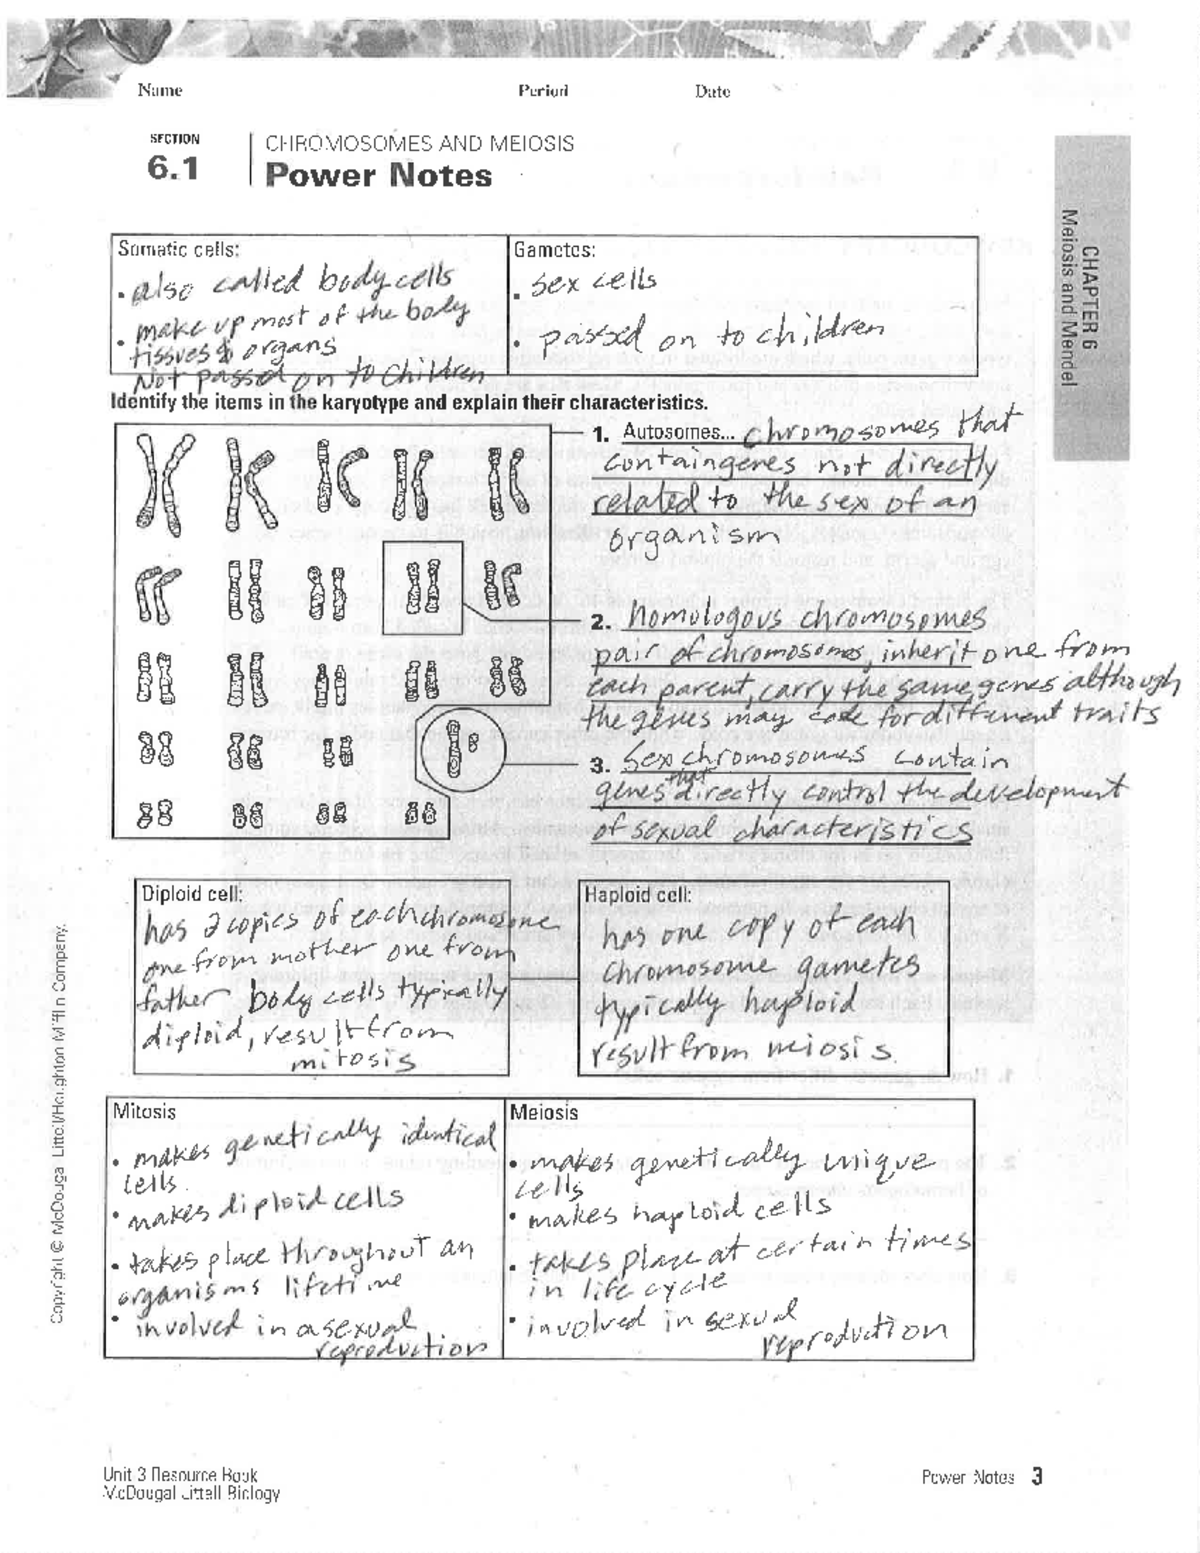 Name Period Date
SECTION
6.1
CHROMOSOMES AND MEIOSIS
Power Notes
CHAPTER 6
Meiosis and Mendel
Somatic cells:
• also called body cells
• make up most of the body
tissues & organs
Not passed on to children
Gametes:
• sex cells
• passed on to children
Identify the items in the karyotype and explain their characteristics.
1. Autosomes... chromosomes that
contain genes not directly
related to the sex of an
organism
2. Homologous chromosomes
pair of chromosomes, inherit one from
each parent, carry the same genes although
the genes may code for different traits
3. Sex chromosomes contain
genes that directly control the development
of sexual characteristics
Diploid cell:
has 2 copies of each chromosome
one from mother one from
father body cells typically
diploid, result from
mitosis
Haploid cell:
has one copy of each
chromosome gametes
typically haploid
result from meiosis.
Mitosis
• makes genetically identical
cells.
• makes diploid cells
• takes place throughout an
organisms lifetime
• involved in asexual
reproduction
Meiosis
• makes genetically unique
cells
• makes haploid cells
• takes place at certain times
in life cycle
• involved in sexual
reproduction
Copyright © McDougal Littell/Houghton Mifflin Company.
Unit 3 Resource Book
McDougal Littell Biology
Power Notes 3